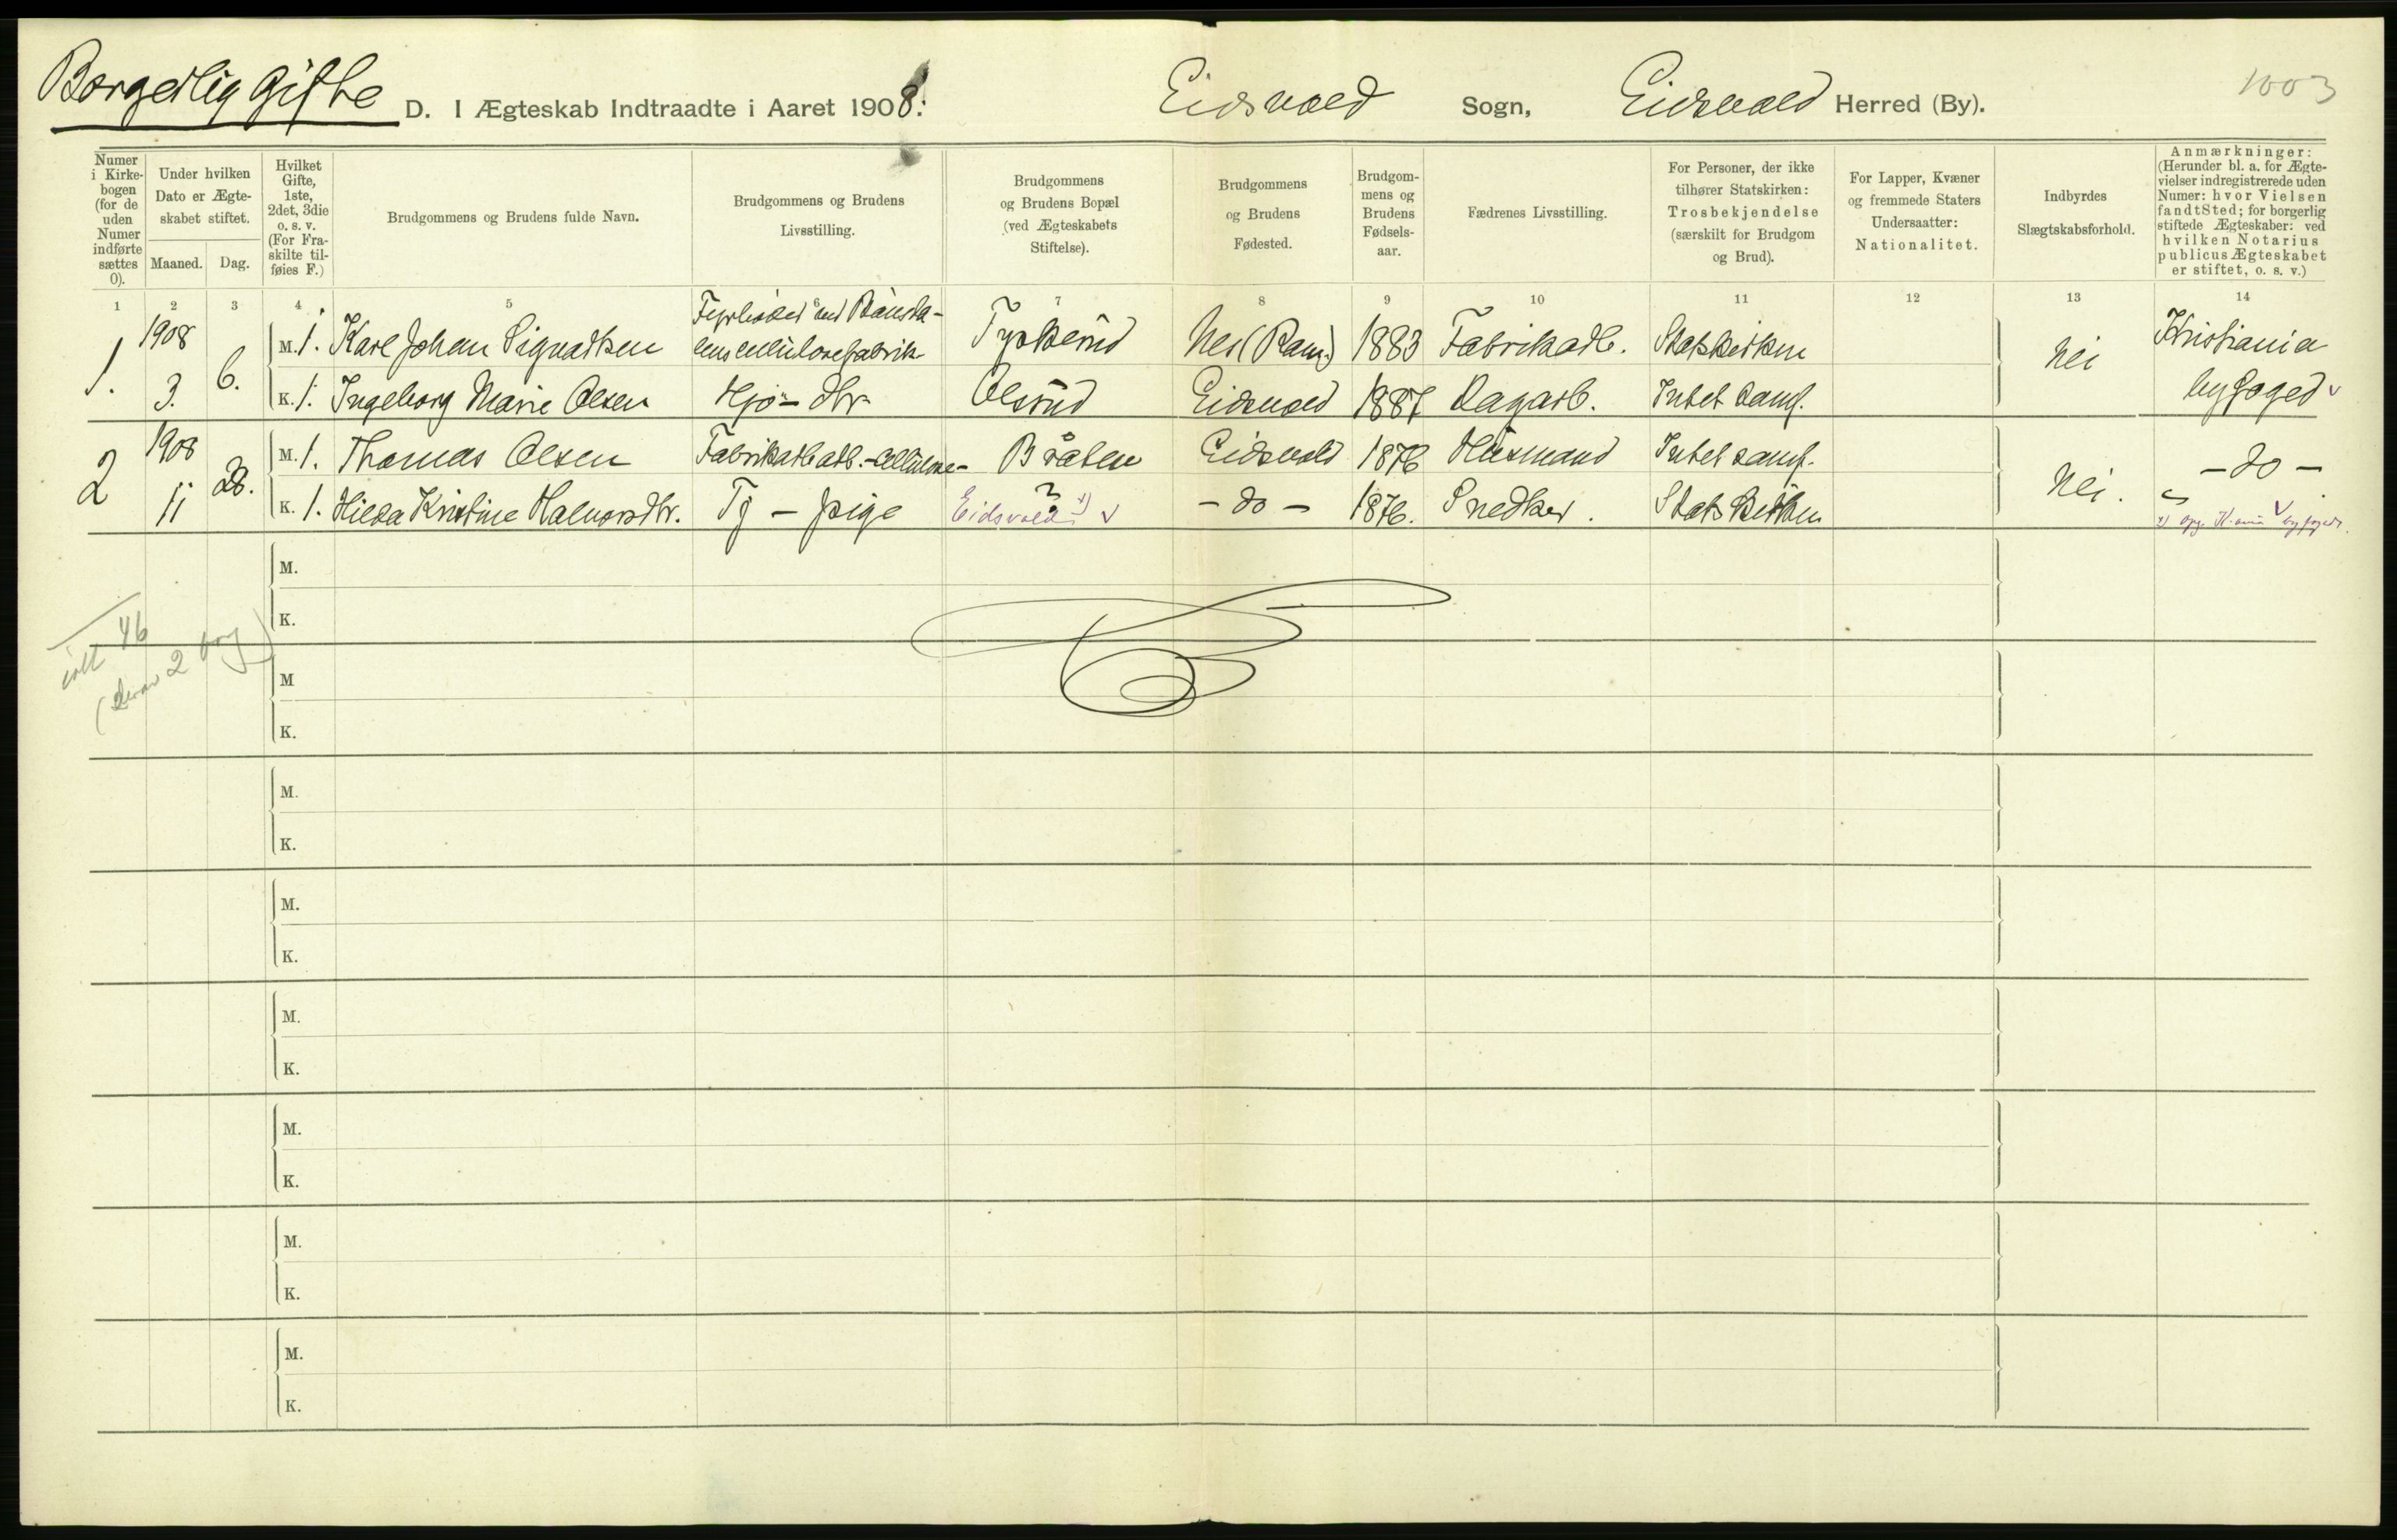 Borgerlig Gifte D. I Ægteskab Indtraadte i Aaret 1908. Eidsvold Sogn, Eidsvold Herred (By). 1003
Numer i Kirkebogen (for de uden Numer indførte sættes 0).
Under hvilken Dato er Ægteskabet stiftet.
Maaned. Dag.
Hvilket Gifte, 1ste, 2det, 3die o. s. v. (For Fraskilte tilføies F.)
Brudgommens og Brudens fulde Navn.
Brudgommens og Brudens Livsstilling.
Brudgommens og Brudens Bopæl (ved Ægteskabets Stiftelse).
Brudgommens og Brudens Fødested.
Brudgommens og Brudens Fødselsaar.
Fædrenes Livsstilling.
For Personer, der ikke tilhører Statskirken: Trosbekjendelse (særskilt for Brudgom og Brud).
For Lapper, Kvæner og fremmede Staters Undersaatter: Nationalitet.
Indbyrdes Slægtskabsforhold.
Anmærkninger: (Herunder bl. a. for Ægtevielser indregistrerede uden Numer: hvor Vielsen fandt Sted; for borgerlig stiftede Ægteskaber: ved hvilken Notarius publicus Ægteskabet er stiftet, o. s. v.)
1 2 3 4 5 6 7 8 9 10 11 12 13 14
1. 1908 3. 6. M. 1. Karl Johan Sigvartsen Fyrbøder ved Bønsdalens cellulosefabrik Nes (Rom.) 1883 Fabrikarb. Statskirken Nei Kristiania
K. 1. Ingeborg Marie Olsen Hj.- dtr. Olsrud Eidsvold 1887 Dagarb. Intet samf. byfoged
2 1908 11 28. M. 1. Thomas Olsen Bråten Eidsvold 1876 Husmand Intet samf. Nei. - do -
K. 1. Hilda Kristine Halvorsdtr. Tj - pige ? Eidsvold x) - do - 1876. Snedker. Statskirken x) opg. Kr.ania byfoged.
M.
K.
ialt 46
(derav 2 borg)
M
K.
M.
K.
M.
K.
M.
K.
M.
K.
M.
K.
M.
K.